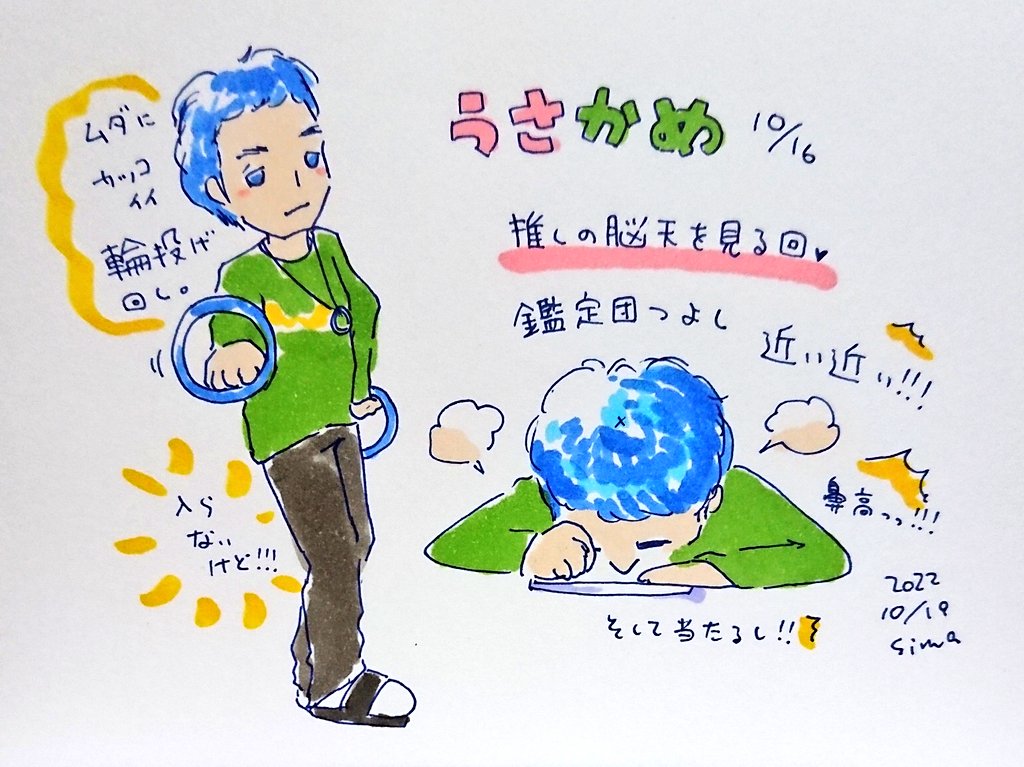 うさかめ 10/16
ムダに
カッコ
イイ
輪投げ
回し。
推しの脳天を見る回♥
鑑定団つよし
近い近い!!!
鼻高っっ!!!
入ら
ない
けど!!!
そして当たるし!!
2022
10/19
sima